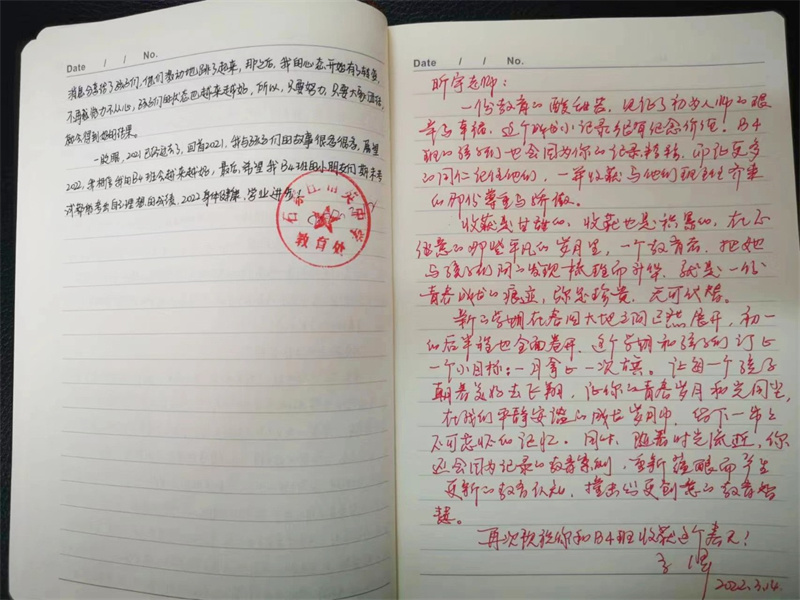 Date / / No.
消息分享给了孩子们,他们激动地跳了起来,那之后,我的心态开始有了转变,
不再被动力不从心,孩子们的状态也越来越好,所以,只要努力,只要大家团结,
都会得到好的结果。
一眨眼,2021已经过去了,回首2021,我与孩子们的故事很多很多,展望
2022,我相信我的B4班会越来越好,最后,希望我B4班的小朋友们期末考
试都能考出自己理想的成绩,2022身体健康,学业进步!
教育处
Date / / No.
昕宇老师:
一份教育的酸甜苦,见证了初为人师的艰
辛与幸福,这个时候的小记录很有纪念价值。B4
班的孩子们也会因为你的记录精精,而让更多
的同仁记住他们,一年收获与他们现在在齐来
的那份尊重与骄傲。
收获是甘甜的,收获也是积累的,在不
经意的那些平凡的岁月里,一个教育者,把她
与孩子们间的发现梳理而升华,就是一份
青春成长的痕迹,弥足珍贵,无可代替。
新的学期在春回大地之间已然展开,初一
的后半程也全面卷开,这个学期和孩子们订上
一个小目标:一月拿上一次红旗。让每一个孩子
朝着美好去飞翔,让你的青春岁月和光同尘,
在我们平静安谧的成长岁月中,留下一串上
不可忘怀的记忆。同时,随着时光流逝,你
还会因为记录的教育案例,重新蕴酿而产生
更新的教育认知,撞击出更创意的教育智
慧。
再次预祝你和B4班收获这个春天!
2022.3.14